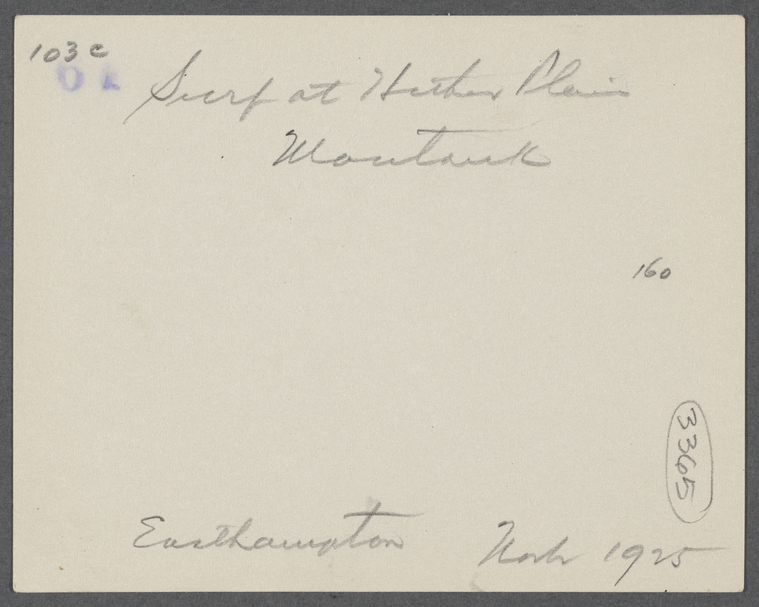 103 c
Surf at Hither Plain
Montauk
160
3365
Easthampton 1925